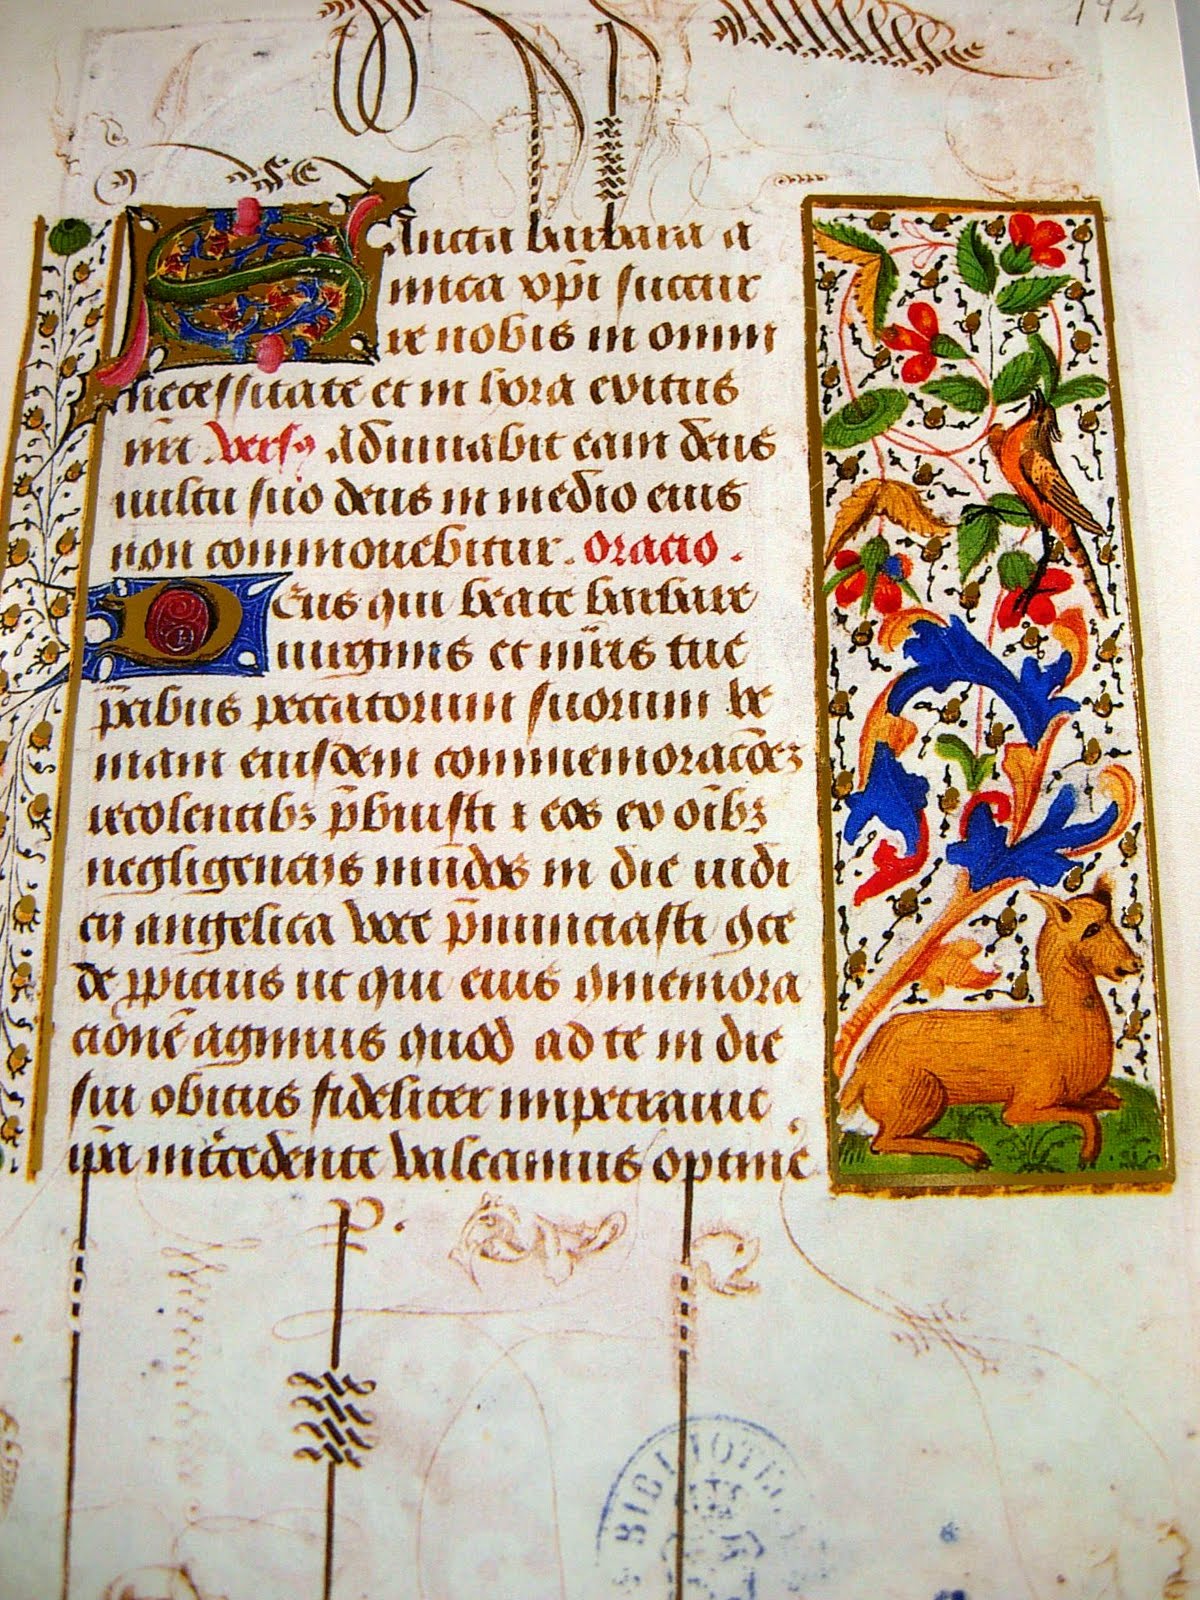 194
Sancta barbara a
mica xp̄i succur
re nobis in omni
necessitate et in hora exitus
nr̄i versꝰ Adiuuabit eam deus
uultu suo deus in medio eius
non commouebitur. Oracio.
Deus qui beate barbare
uirginis et mr̄is tue
p̄cibus peccatorum suorum ue
niam eiusdem commemorac̄oēȝ
recolentibȝ p̄buisti ⁊ eos ex oībȝ
negligencijs mūdos in die iudi
cij angelica voce p̄nunciasti ꝯce
de ꝓpicius ut qui eius ꝯmemora
cionē agimus quod ad te in die
sui obitus fideliter impetrauit
ip̄a int̄cedente valeamus optine
BIBLIOTE